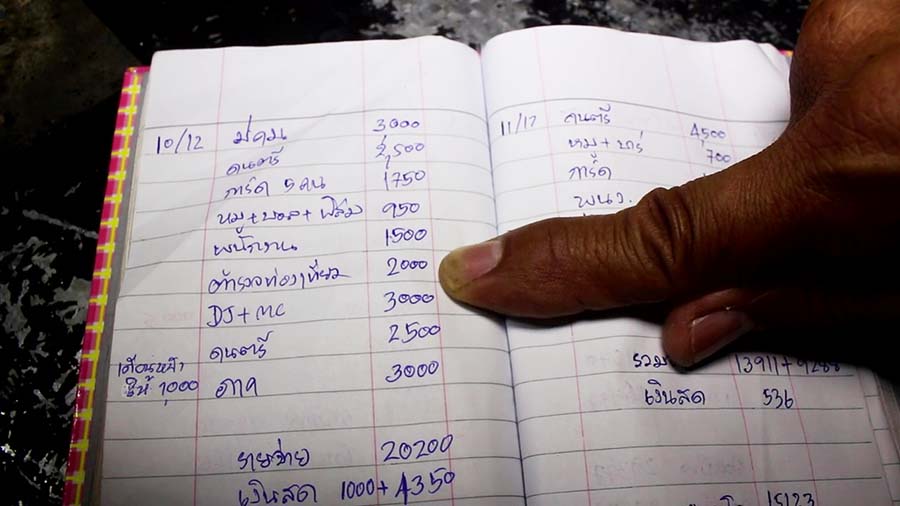 10/12 มดน 3000
ดนตรี 2,500
การ์ด 5 คน 1750
หมู+บอล+ฟิล์ม 950
พนักงาน 1500
ตำรวจท่องเที่ยว 2000
DJ+MC 3000
ดนตรี 2500
เดือนหน้า ให้ 1,000
ภาค 3000
รายจ่าย 20200
เงินสด 1000+4350
11/12 ดนตรี 4,500
หมู+บาร์ 700
การ์ด
พนง.
รวม 13911+9288
เงินสด 536
15123